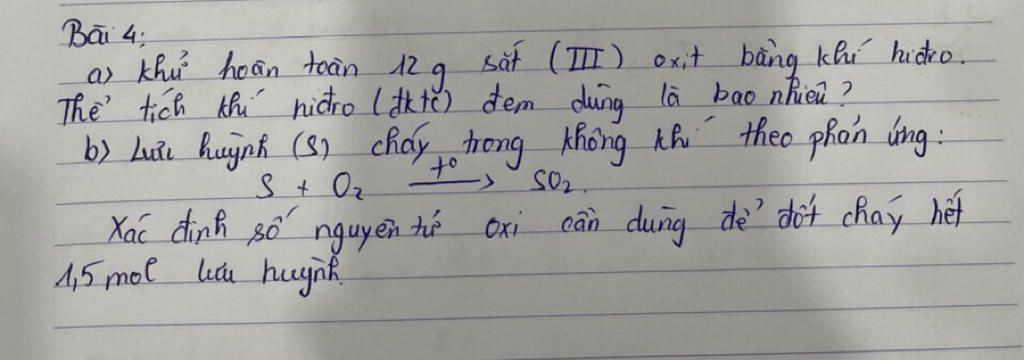 Bài 4:
a) Khử hoàn toàn 12 g sắt (III) oxit bằng khí hiđro.
Thể tích khí hiđro (đktc) đem dùng là bao nhiêu?
b) Lưu huỳnh (S) cháy trong không khí theo phản ứng:
S + O₂ —t°→ SO₂.
Xác định số nguyên tử oxi cần dùng để đốt cháy hết
1,5 mol lưu huỳnh.